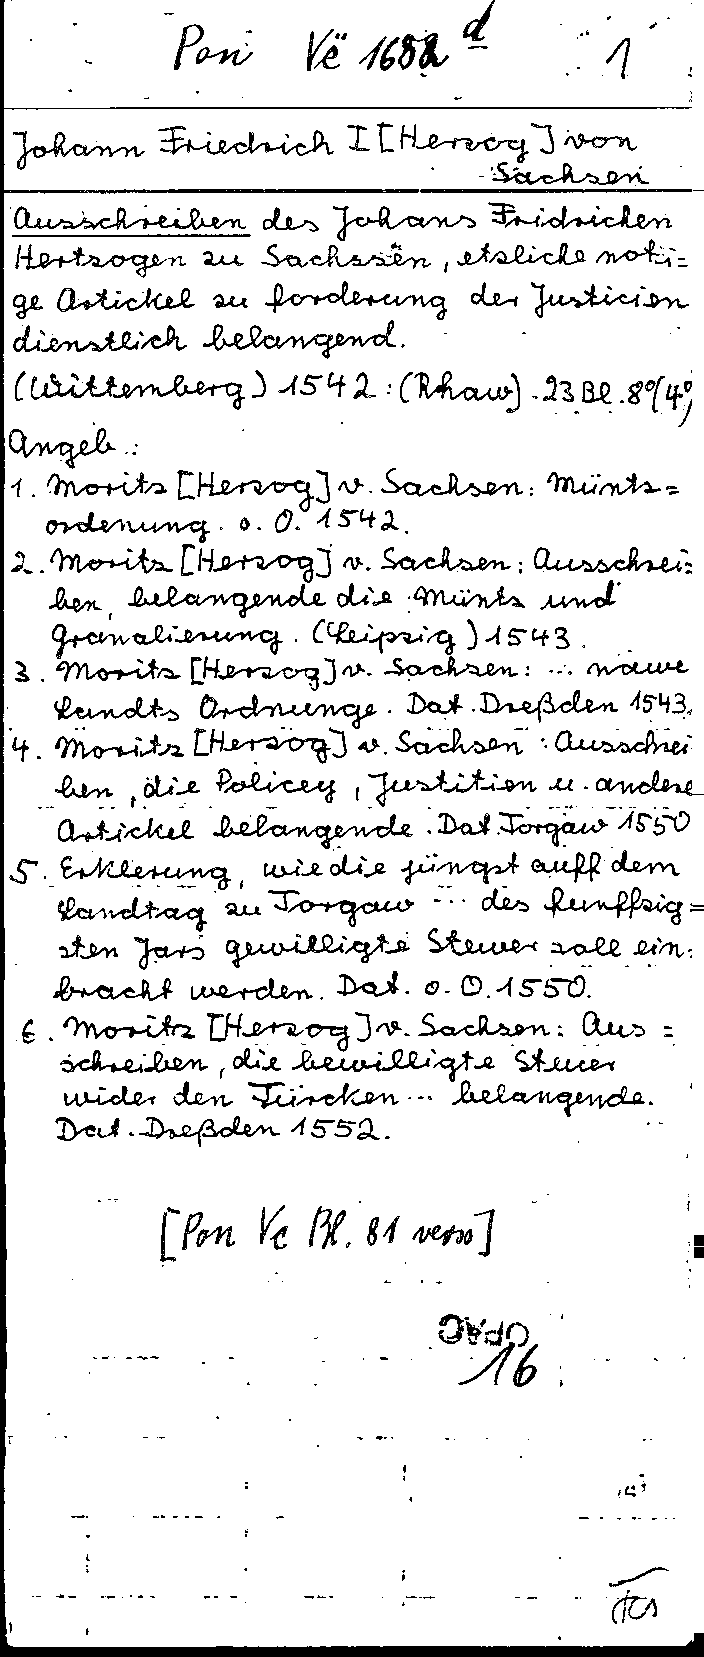 Pon Vc 1688 d 1
Johann Friedrich I [Herzog] von
Sachsen
Ausschreiben des Johans Fridrichen
Hertzogen zu Sachssen, etzliche noti=
ge Artickel zu forderung der Justicien
dienstlich belangend.
(Wittemberg) 1542: (Rhaw). 23 Bl. 8°(4°)
Angeb.:
1. Moritz [Herzog] v. Sachsen: Müntz=
ordenung. o. O. 1542.
2. Moritz [Herzog] v. Sachsen: Ausschrei=
ben, belangende die Müntz und
Granalierung. (Leipzig) 1543.
3. Moritz [Herzog] v. Sachsen: ... nawe
Landts Ordnunge. Dat. Dreßden 1543.
4. Moritz [Herzog] v. Sachsen: Ausschrei
ben, die Policey, Justition u. andere
Artickel belangende. Dat. Torgaw 1550
5. Erklerung, wie die jüngst auff dem
Landtag zu Torgaw ... des funffzig=
sten Jars gewilligte Stewer soll ein=
bracht werden. Dat. o. O. 1550.
6. Moritz [Herzog] v. Sachsen: Aus=
schreiben, die bewilligte Steuer
wider den Türcken ... belangende.
Dat. Dreßden 1552.
[Pon Vc Bl. 81 verso]
OPAC
16